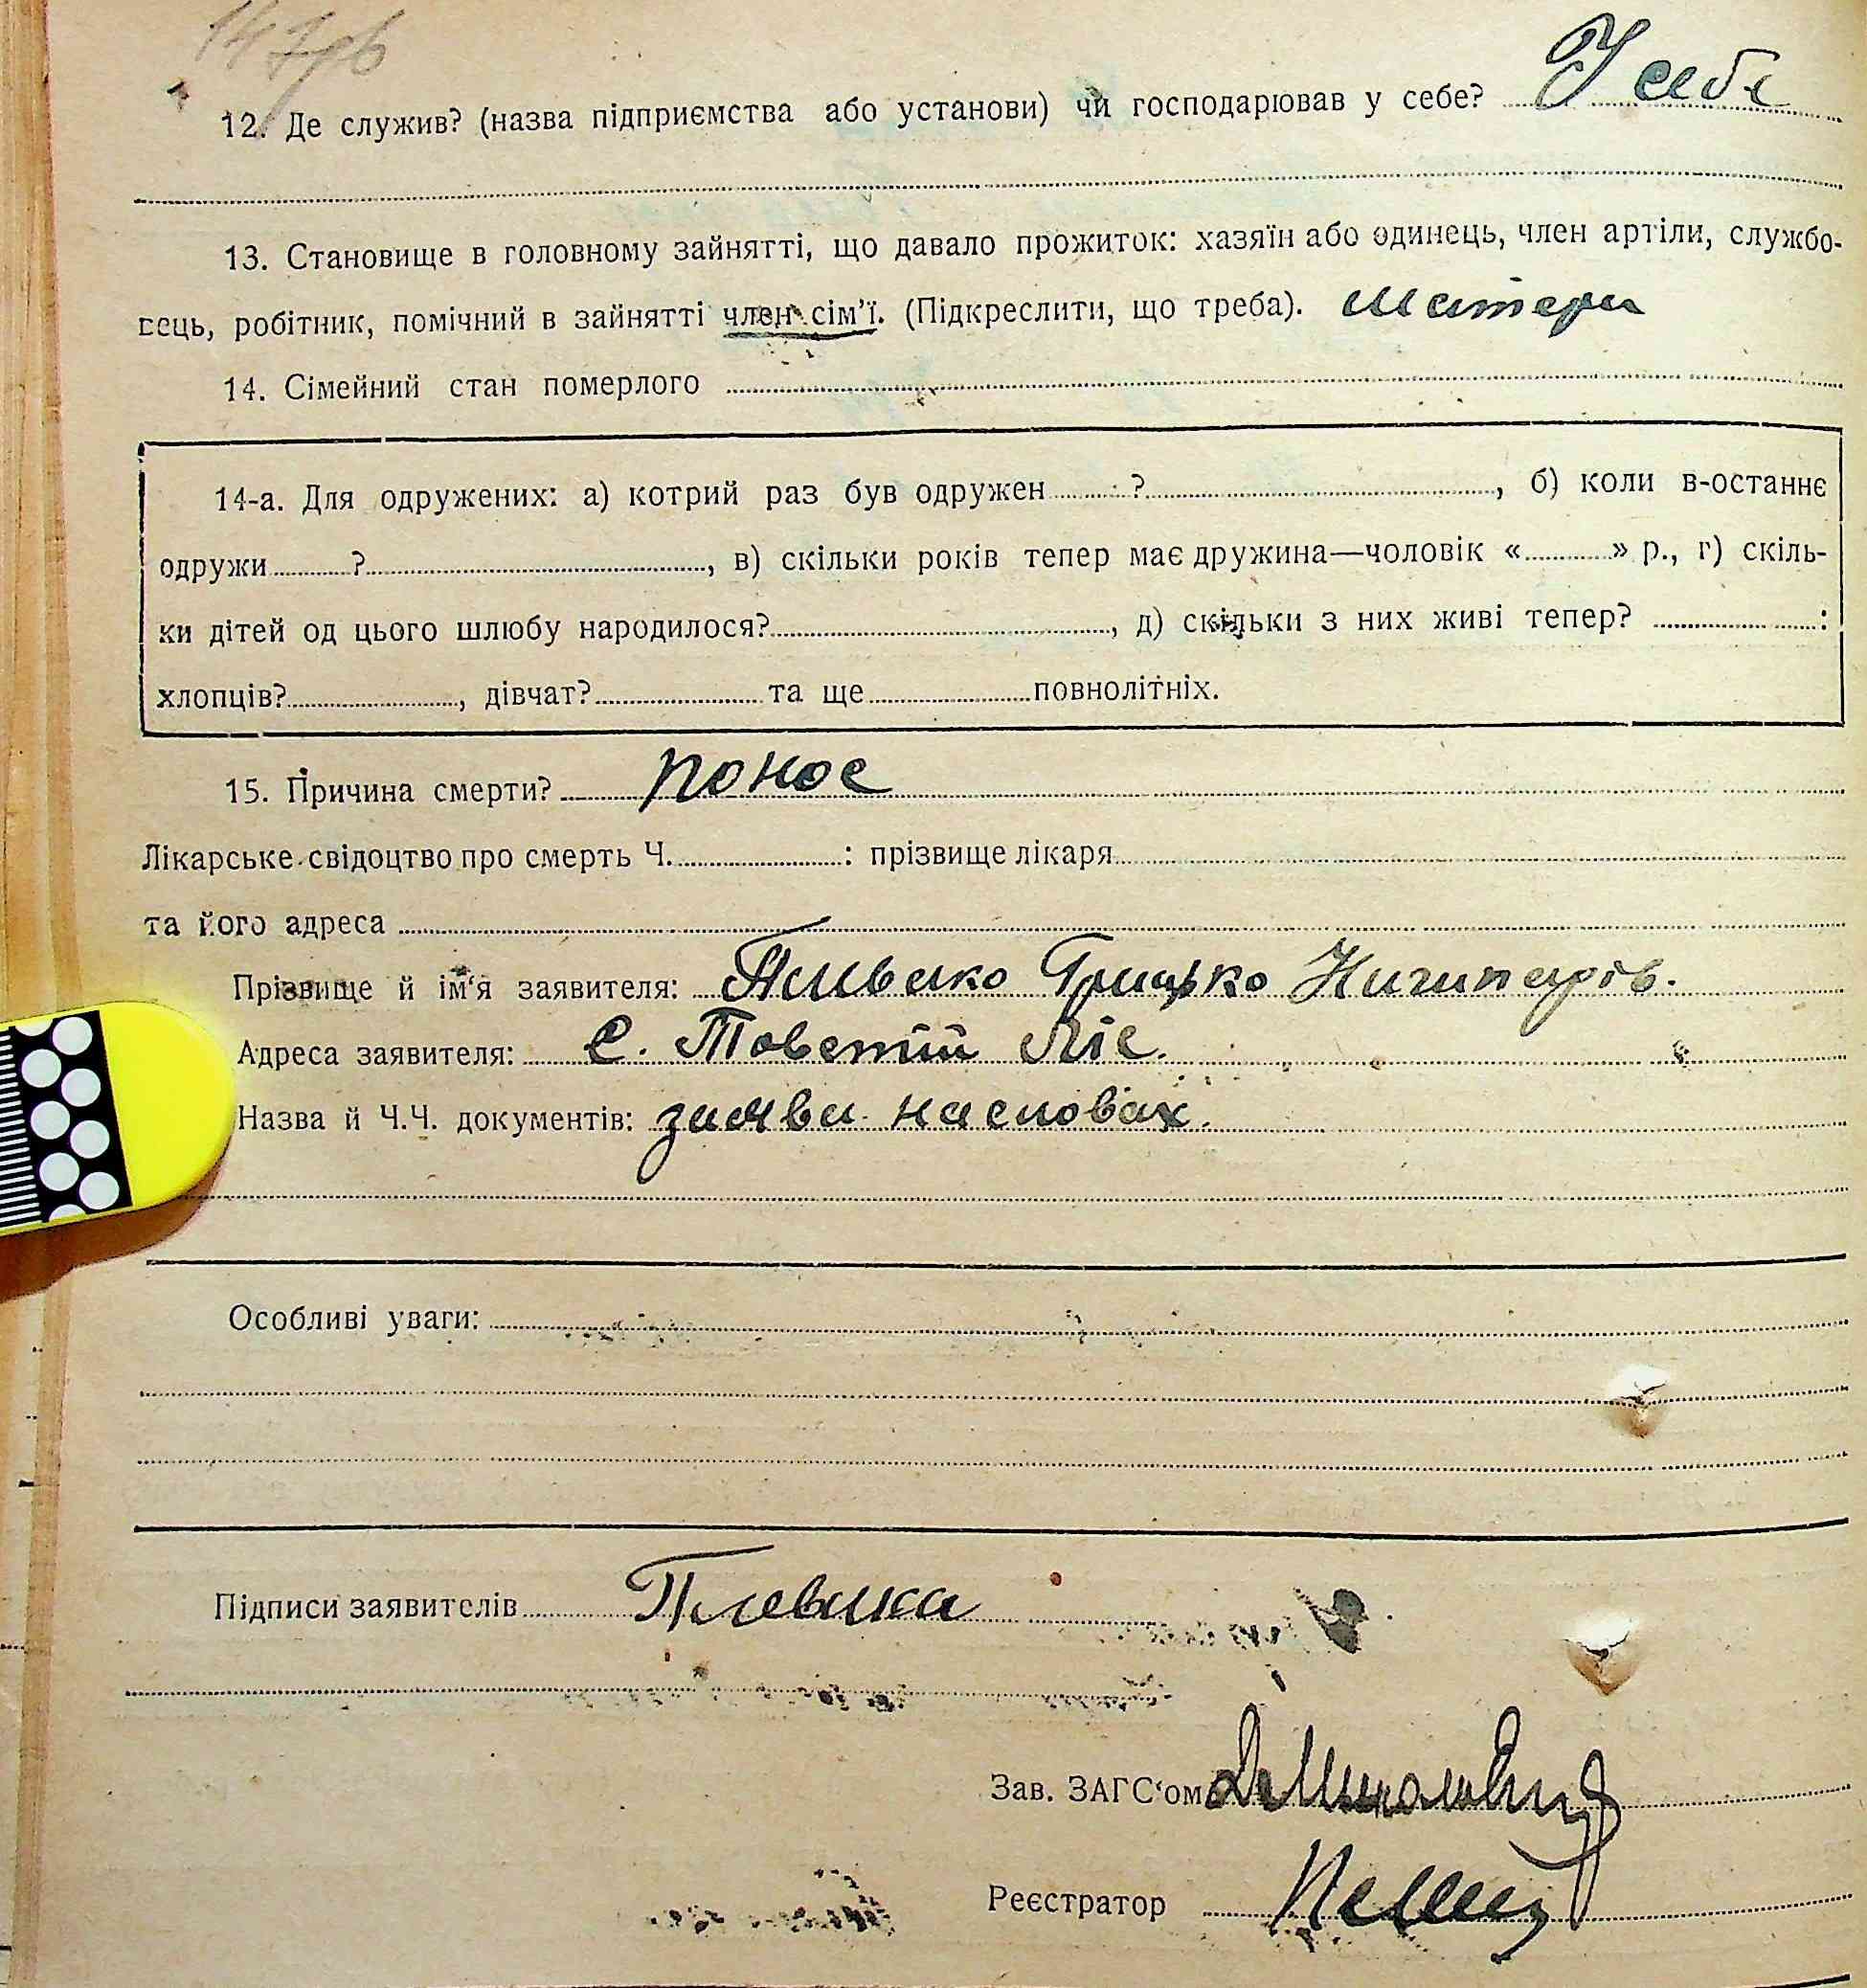 147
12. Де служив? (назва підприємства або установи) чи господарював у себе? У себе
13. Становище в головному зайнятті, що давало прожиток: хазяїн або одинець, член артіли, службо-
вець, робітник, помічний в зайнятті член сім'ї. (Підкреслити, що треба). матери
14. Сімейний стан померлого
14-а. Для одружених: а) котрий раз був одружен ?, б) коли в-останнє
одружи ?, в) скільки років тепер має дружина—чоловік « » р., г) скіль-
ки дітей од цього шлюбу народилося?, д) скільки з них живі тепер? :
хлопців?, дівчат? та ще повнолітніх.
15. Причина смерти? понос
Лікарське свідоцтво про смерть Ч. : прізвище лікаря
та його адреса
Прізвище й ім'я заявителя: Грицько Ничипорів.
Адреса заявителя: С. Товстий Ліс.
Назва й Ч.Ч. документів: заява на словах.
Особливі уваги:
Підписи заявителів
Зав. ЗАГС'ом
Реєстратор